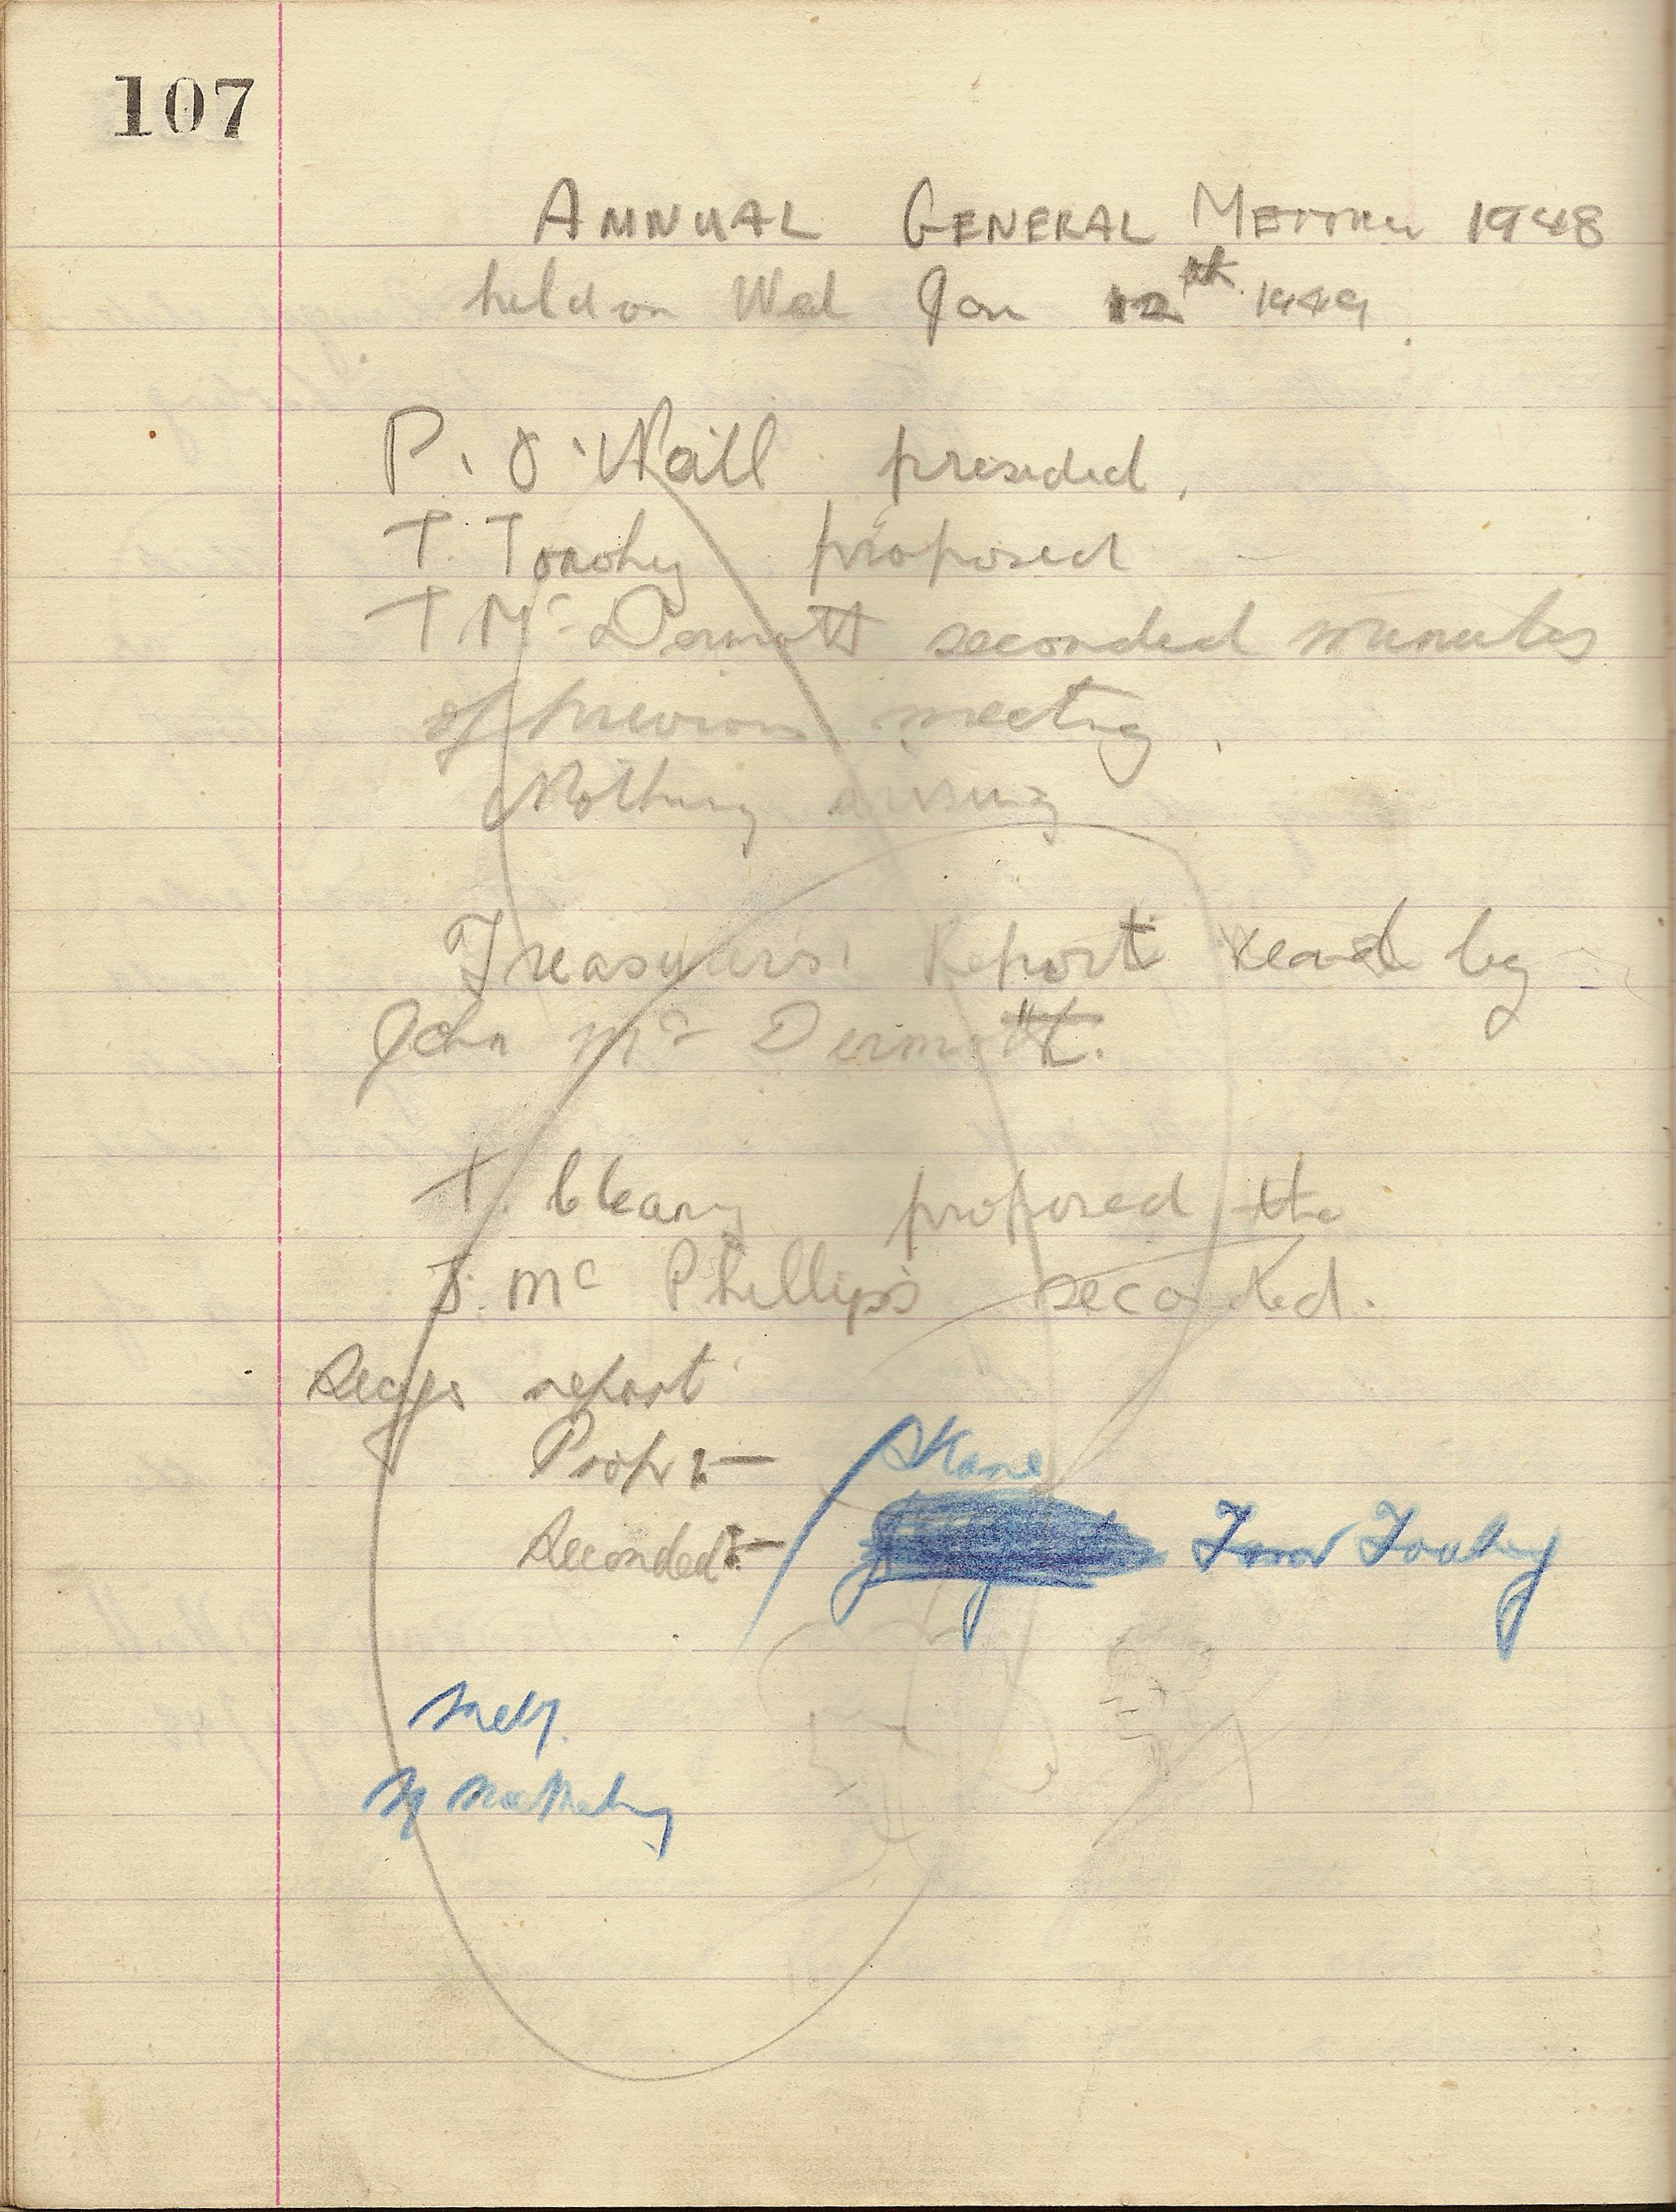 107
ANNUAL GENERAL MEETING 1948
held on Wed Jan 12th 1949
P. O'Neill presided.
T. Toohey proposed
T Mc Dermott seconded minutes
of previous meeting.
Nothing arising
Treasurers' Report read by
John Mc Dermott.
T. Cleary proposed the
J. Mc Phillips seconded.
Secys report
Prop :— S Kane
Seconded :—